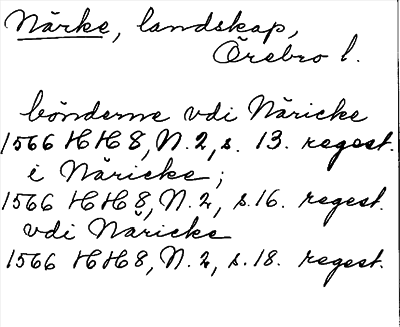 Närke, landskap,
Örebro l.
bönderne vdi Näricke
1566 HH8, N. 2, s. 13. regest.
i Näricke;
1566 HH8, N. 2, s. 16. regest.
vdi Näricke
1566 HH8, N. 2, s. 18. regest.